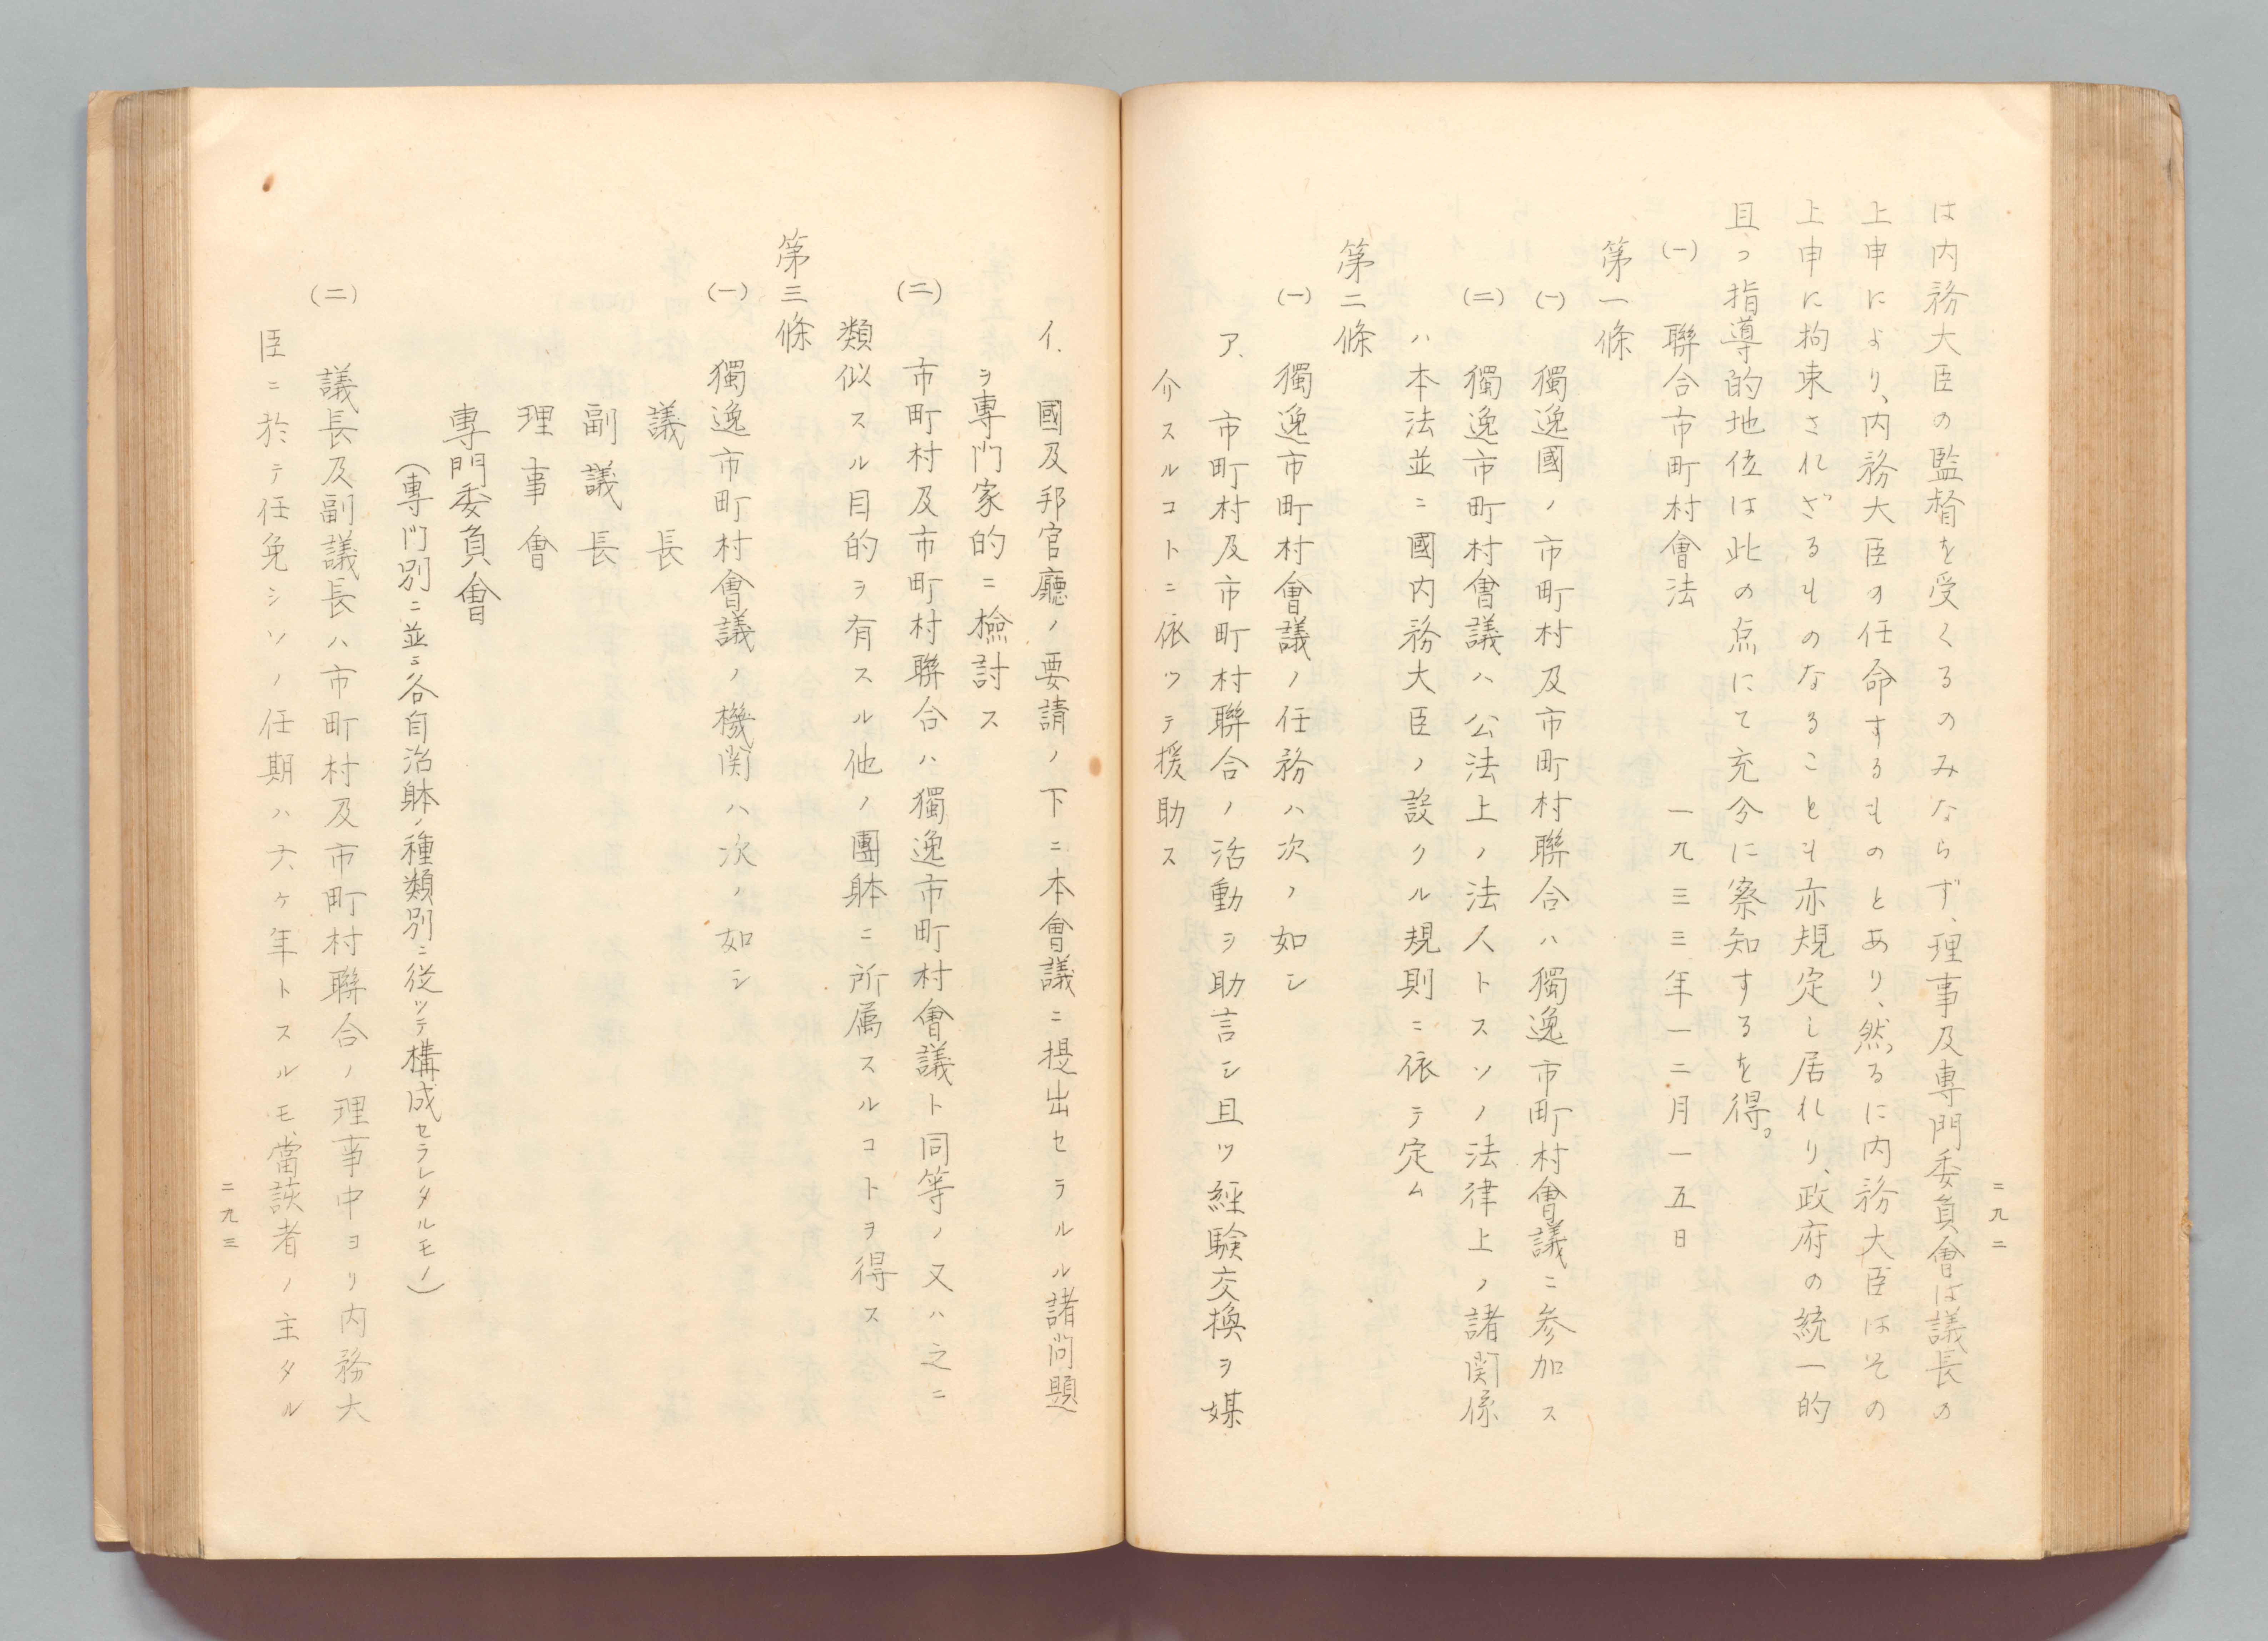 は内務大臣の監督を受くるのみならず、理事及專門委員會は議長の
上申により、内務大臣の任命するものとあり、然るに内務大臣はその
上申に拘束されざるものなることも亦規定し居れり、政府の統一的
且つ指導的地位は此の点にて充分に察知するを得。
(一) 聯合市町村會法 一九三三年一二月一五日
第一條
(一) 獨逸國ノ市町村及市町村聯合ハ獨逸市町村會議ニ参加ス
(二) 獨逸市町村會議ハ公法上ノ法人トスソノ法律上ノ諸関係
ハ本法並ニ國内務大臣ノ設クル規則ニ依テ定ム
第二條
(一) 獨逸市町村會議ノ任務ハ次ノ如シ
ア、市町村及市町村聯合ノ活動ヲ助言シ且ツ経験交換ヲ媒
介スルコトニ依ツテ援助ス
二九二
イ、國及邦官廳ノ要請ノ下ニ本會議ニ提出セラルル諸問題
ヲ專門家的ニ檢討ス
(二) 市町村及市町村聯合ハ獨逸市町村會議ト同等ノ又ハ之ニ
類似スル目的ヲ有スル他ノ團躰ニ所属スルコトヲ得ス
第三條
(一) 獨逸市町村會議ノ機関ハ次ノ如シ
議長
副議長
理事會
專門委員會
(專門別ニ並ニ各自治躰ノ種類別ニ從ツテ構成セラレタルモノ)
(二) 議長及副議長ハ市町村及市町村聯合ノ理事中ヨリ内務大
臣ニ於テ任免シソノ任期ハ六ヶ年トスルモ、當該者ノ主タル
二九三